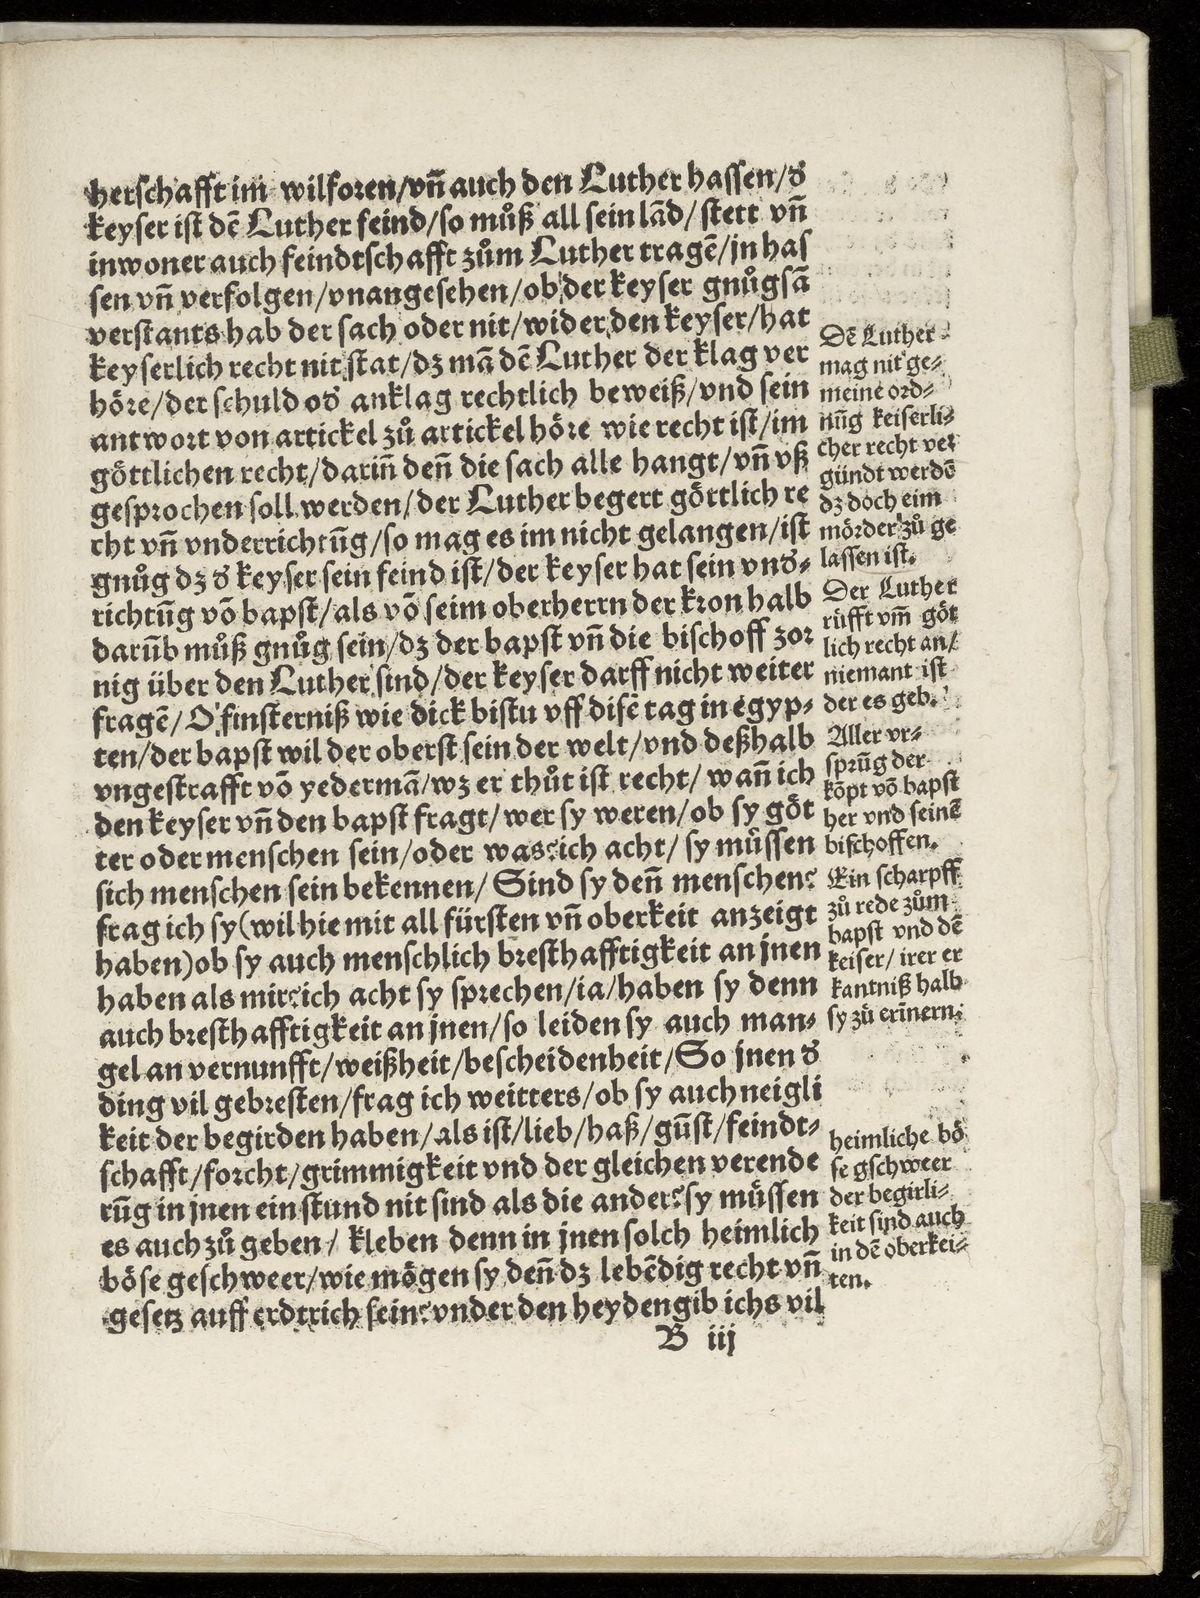 herschafft im wilforen/vñ auch den Luther hassen/d̕
keyser ist dẽ Luther feind/so můß all sein lãd/stett vñ
inwoner auch feindtschafft zům Luther tragẽ/jn has
sen vñ verfolgen/vnangesehen/ob der keyser gnůgsã
verstants hab der sach oder nit/wider den keyser/hat
keyserlich recht nit stat/dz mã dẽ Luther der klag ver
höre/der schuld od̕ anklag rechtlich beweiß/vnd sein
antwort von artickel zů artickel höre wie recht ist/im
göttlichen recht/dariñ deñ die sach alle hangt/vñ vß
gesprochen soll werden/der Luther begert göttlich re
cht vñ vnderrichtũg/so mag es im nicht gelangen/ist
gnůg dz d̕ keyser sein feind ist/der keyser hat sein vnd̕⸗
richtũg võ bapst/als võ seim oberherrn der kron halb
darũb můß gnůg sein/dz der bapst vñ die bischoff zor
nig über den Luther sind/der keyser darff nicht weiter
fragẽ/O finsterniß wie dick bistu vff disẽ tag in egyp⸗
ten/der bapst wil der oberst sein der welt/vnd deßhalb
vngestrafft võ yedermã/wz er thůt ist recht/wañ ich
den keyser vñ den bapst fragt/wer sy weren/ob sy göt
ter oder menschen sein/oder was? ich acht/sy müssen
sich menschen sein bekennen/Sind sy deñ menschen?
frag ich sy(wil hie mit all fürsten vñ oberkeit anzeigt
haben)ob sy auch menschlich bresthafftigkeit an jnen
haben als mir? ich acht sy sprechen/ia/haben sy denn
auch bresthafftigkeit an jnen/so leiden sy auch man⸗
gel an vernunfft/weißheit/bescheidenheit/So jnen d̕
ding vil gebresten/frag ich weitters/ob sy auch neigli
keit der begirden haben/als ist/lieb/haß/gũst/feindt⸗
schafft/forcht/grimmigkeit vnd der gleichen verende
rũg in jnen ein stund nit sind als die ander? sy müssen
es auch zů geben/kleben denn in jnen solch heimlich
böse geschweer/wie mögen sy deñ dz lebẽdig recht vñ
gesetz auff erdtrich sein? vnder den heyden gib ichs vil
B iij
Dẽ Luther
mag nit ge⸗
meine ord⸗
nũg keiserli⸗
cher recht ver
gündt werdẽ
dz doch eim
mörder zů ge
lassen ist.
Der Luther
rüfft vm̃ göt
lich recht an/
niemant ist
der es geb.
Aller vr⸗
sprũg der
kõpt võ bapst
her vnd seinẽ
bischoffen.
Ein scharpff
zů rede zům
bapst vnd dẽ
keiser/irer er
kantniß halb
sy zů eriñern.
heimliche bö
se gschweer
der begirli⸗
keit sind auch
in dẽ oberkei⸗
ten.